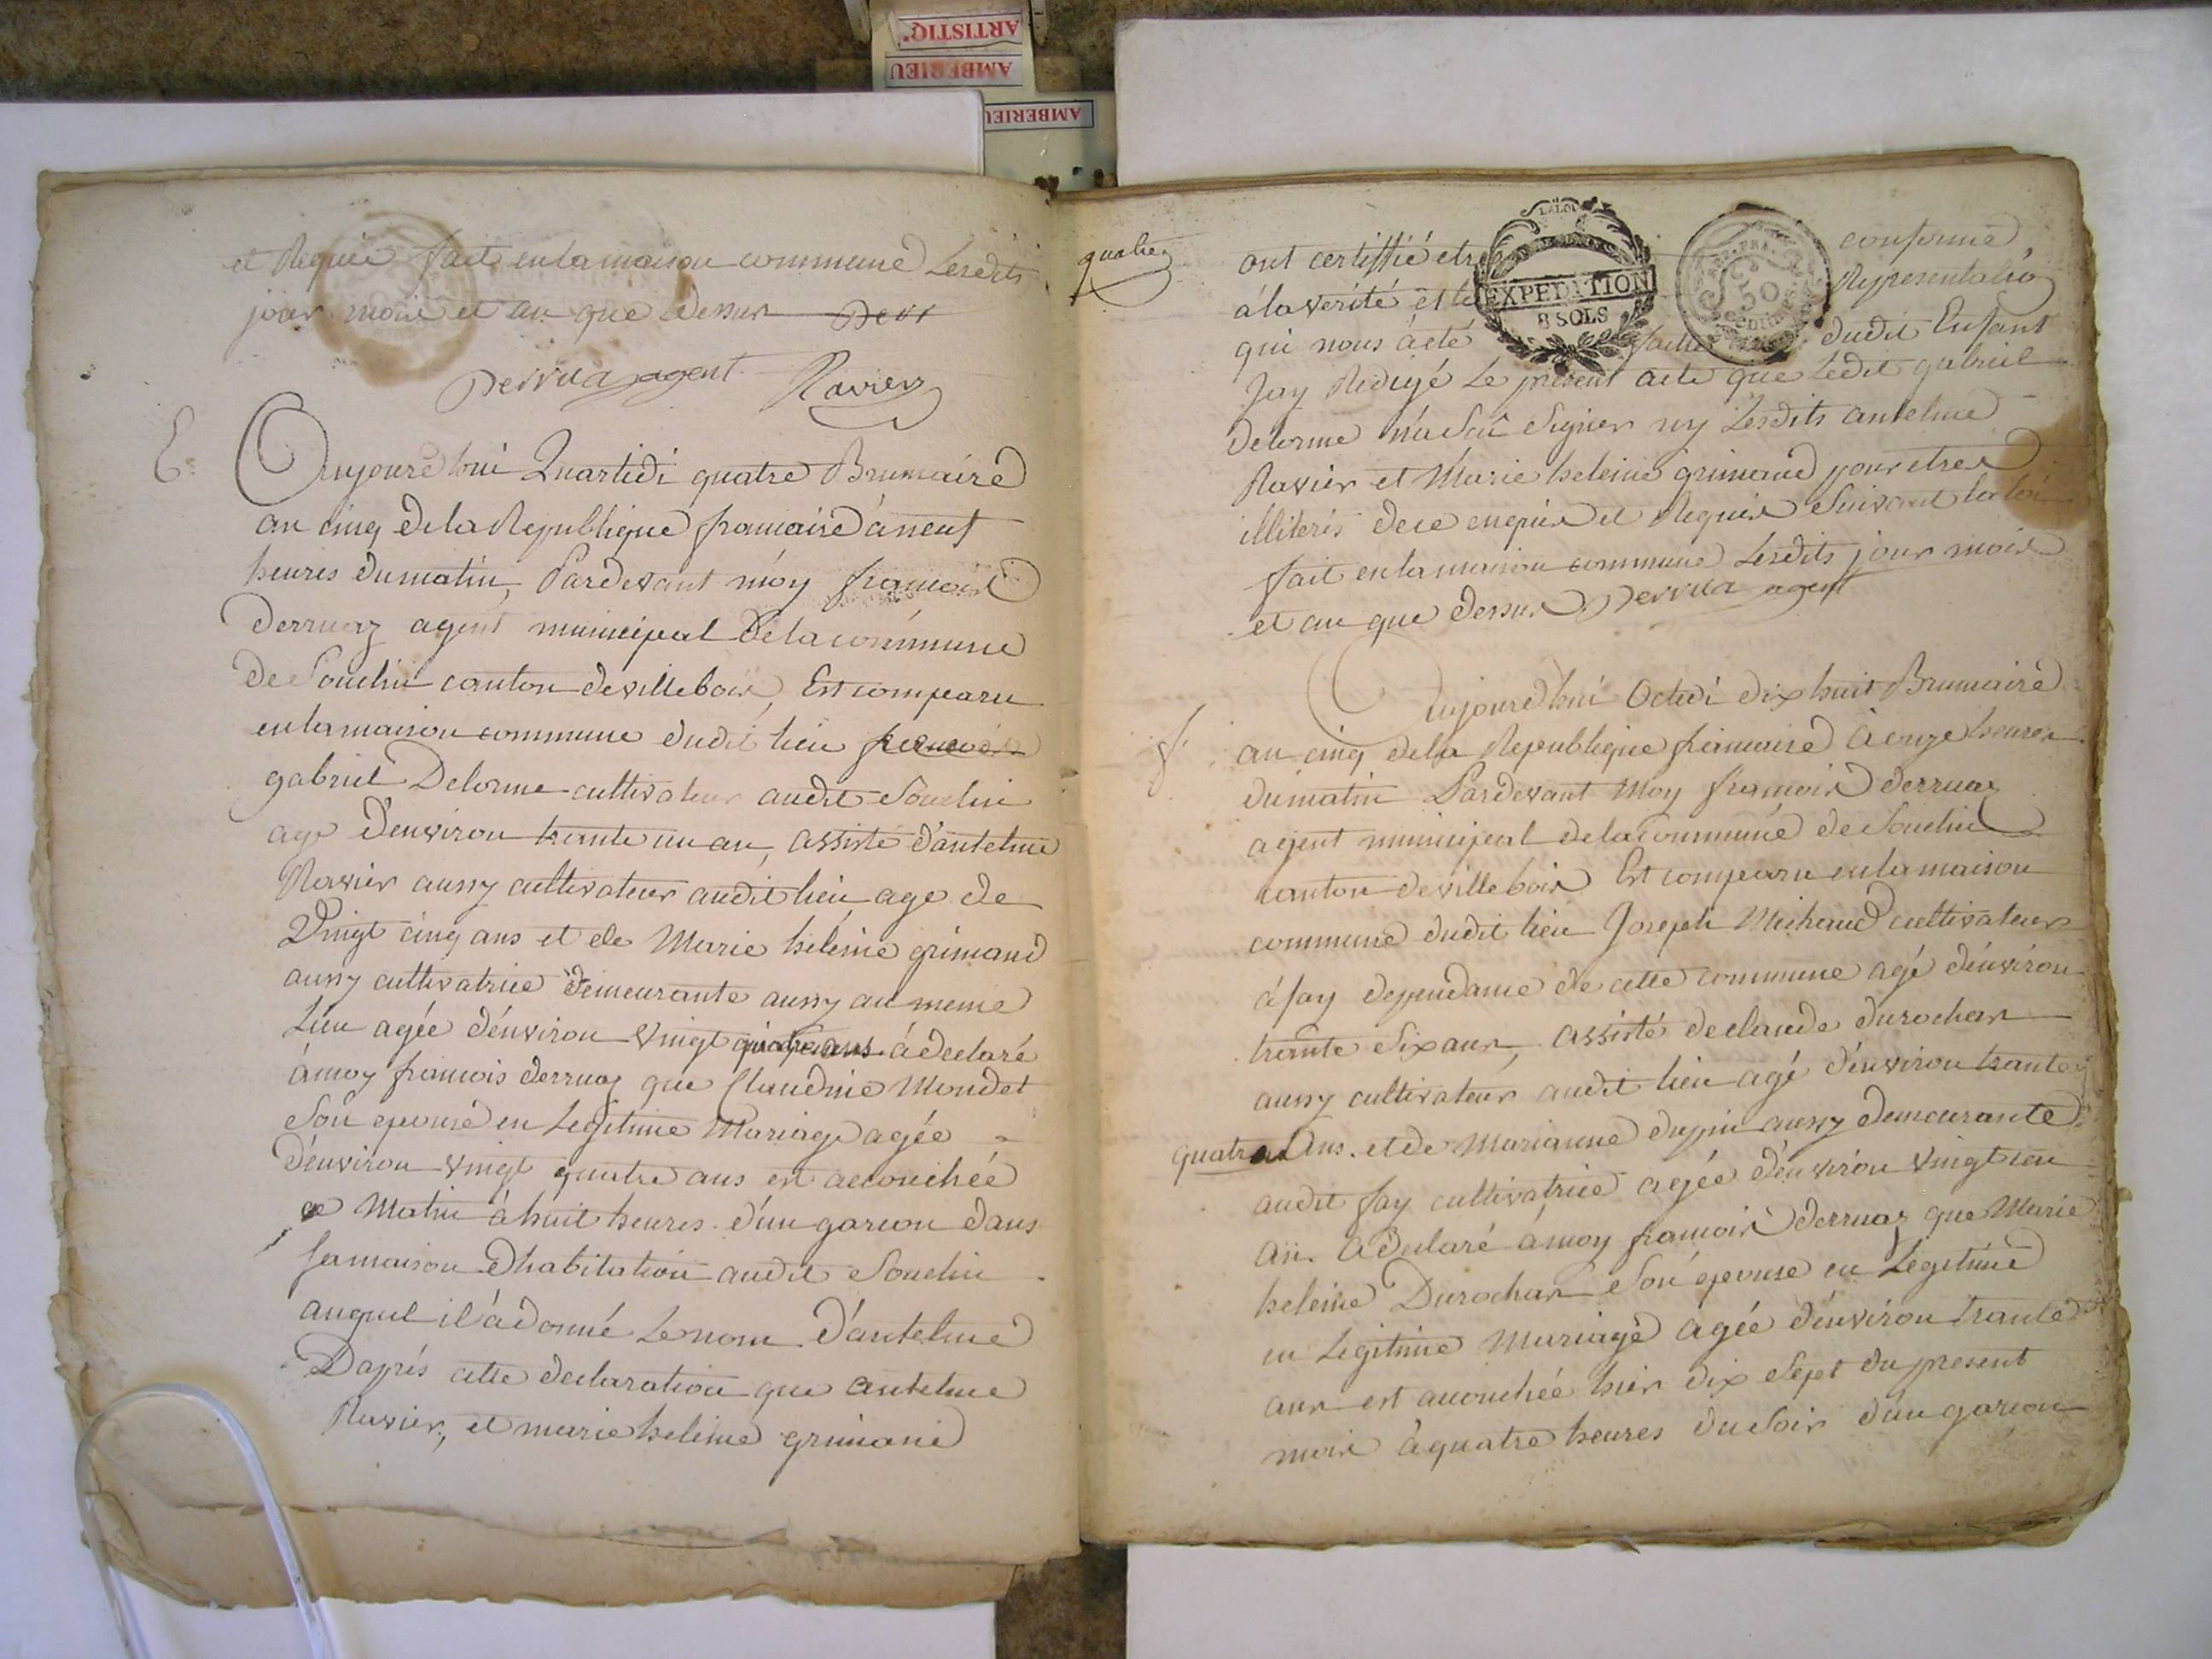 ARTISTIQ'
AMBERIEU
AMBERIEU
et Requis fait en la maison commune Lesdits
jour mois et an que dessus Derr
Derruaz agent Ravier
E.
Aujourdhui Quartidi quatre Brumaire
an cinq de la Republique francaise à neuf
heures du matin, Pardevant moy francois
Derruaz agent municipal de la commune
de Souclin canton de villebois, Est comparu
en la maison commune dudit lieu
gabriel Delorme cultivateur audit Souclin
age d'environ trante un an, assisté d'antelme
Ravier aussy cultivateur audit lieu age de
Vingt cinq ans et de Marie heleine grimand
aussy cultivatrice demeurante aussy au meme
Lieu agée d'environ vingt quatre ans à declaré
à moy francois derruaz que Claudine Mondet
Son epouse en Legitime Mariage agée
d'environ vingt quatre ans est accouchée
ce Matin à huit heures d'un garcon dans
sa maison dhabitation audit Souclin
auquel il à donné Le nom d'antelme
Daprés cette declaration que antelme
Ravier, et marie heleine grimand
quatre
ont certiffié etre conforme
à la verité et la Representation
qui nous à eté faitte dudit Enfant
Jay Redigé Le present acte que Ledit gabriel
delorme n'a Scu Signer ny Lesdits antelme
Ravier et Marie heleine grimand pour etre
illiterés de ce enquis et Requis Suivant la loi
fait en la maison commune Lesdits jour mois
et an que dessus Derruaz agent
LA LOI
EXPEDITION
8 SOLS
50
CENTIMES
f.
Aujourdhui Octidi dix huit Brumaire
an cinq de la Republique francaise à onze heures
du matin Pardevant Moy francois derruaz
agent municipal de la commune de Souclin
canton de villebois Est comparu en la maison
commune dudit lieu Joseph Michaud cultivateur
à fay dependance de cette commune agé d'environ
trante Six ans, assisté de claude durochar
aussy cultivateur audit lieu agé d'environ trante
quatre Ans. et de Marianne dupin aussy demeurante
audit fay cultivatrice agée d'environ vingt un
an. à declaré à moy francois derruaz que Marie
heleine Durochar Son epouse en Legitime
en Legitime Mariage agée d'environ trante
ans est accouchée hier dix Sept du present
mois à quatre heures du Soir d'un garcon